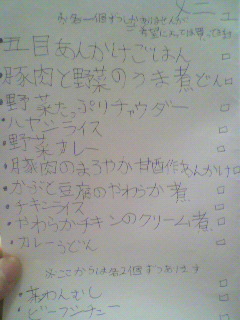 メニュー
各一個ずつしかありませんが
希望によっては買ってきます
・五目あんかけごはん
・豚肉と野菜のうま煮どん
・野菜たっぷりチャウダー
・ハヤシライス
・野菜カレー
・豚肉のまろやか甘酢あんかけ
・かぶと豆腐のやわらか煮
・チキンライス
・やわらかチキンのクリーム煮
・カレーうどん
※ここからは各2個ずつあります
・茶わんむし
・ビーフシチュー